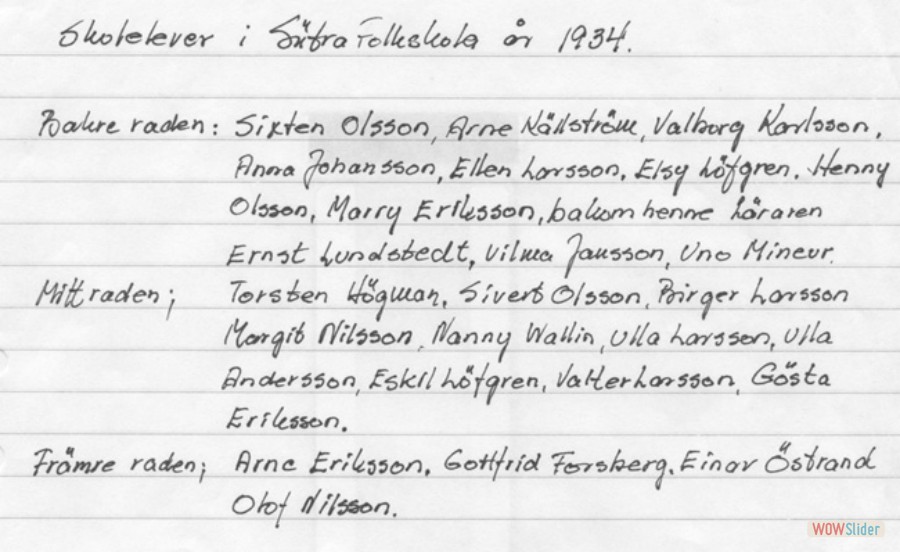 Skolelever i Sätra Folkskola år 1934.
Bakre raden: Sixten Olsson, Arne Nällström, Valborg Karlsson,
Anna Johansson, Ellen Larsson, Elsy Löfgren, Henny
Olsson, Marry Eriksson, bakom henne Läraren
Ernst Lundstedt, Vilma Jansson, Uno Mineur.
Mittraden; Torsten Högman, Sivert Olsson, Birger Larsson
Margit Nilsson, Nanny Wallin, Ulla Larsson, Ulla
Andersson, Eskil Löfgren, Valter Larsson, Gösta
Eriksson.
Främre raden; Arne Eriksson, Gottfrid Forsberg, Einar Östrand
Olof Nilsson.
WOWSlider